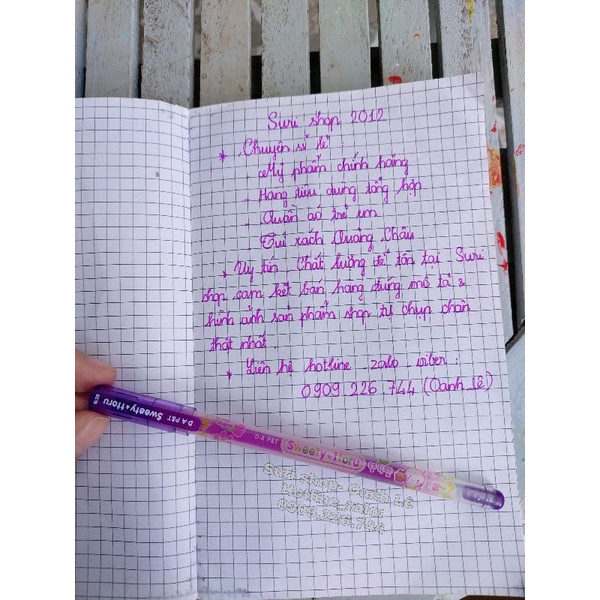 Suri shop 2012
* Chuyên sỉ lẻ :
- Mỹ phẩm chính hãng
- Hàng tiêu dùng tổng hợp
- Quần áo trẻ em
- Túi xách Quảng Châu
* Uy tín - Chất lượng để tồn tại. Suri
shop cam kết bán hàng đúng mô tả &
hình ảnh sản phẩm shop tự chụp chân
thật nhất
* Liên hệ hotline - zalo - viber :
0909.226.744 (Oanh Lê)
D.A P&T Sweety & Horu
D.A P&T Sweety & Horu
Suri shop- Oanh Lê
Hotline_zalo:
0909.226.744